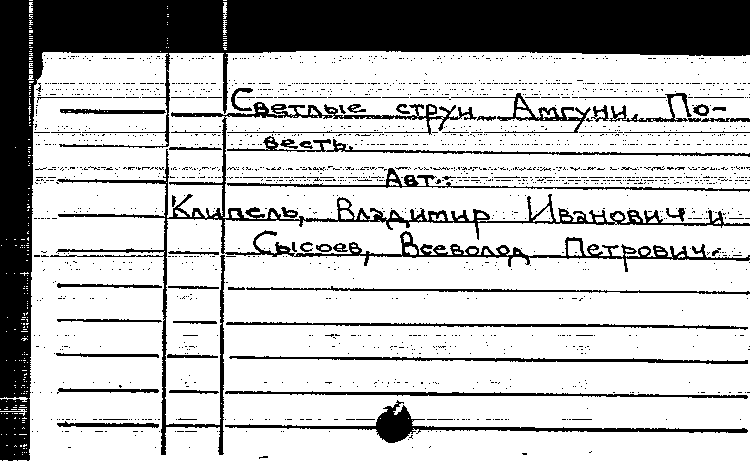 Светлые струи Амгуни. По-
весть.
Авт.:
Клипель, Владимир Иванович и
Сысоев, Всеволод Петрович.